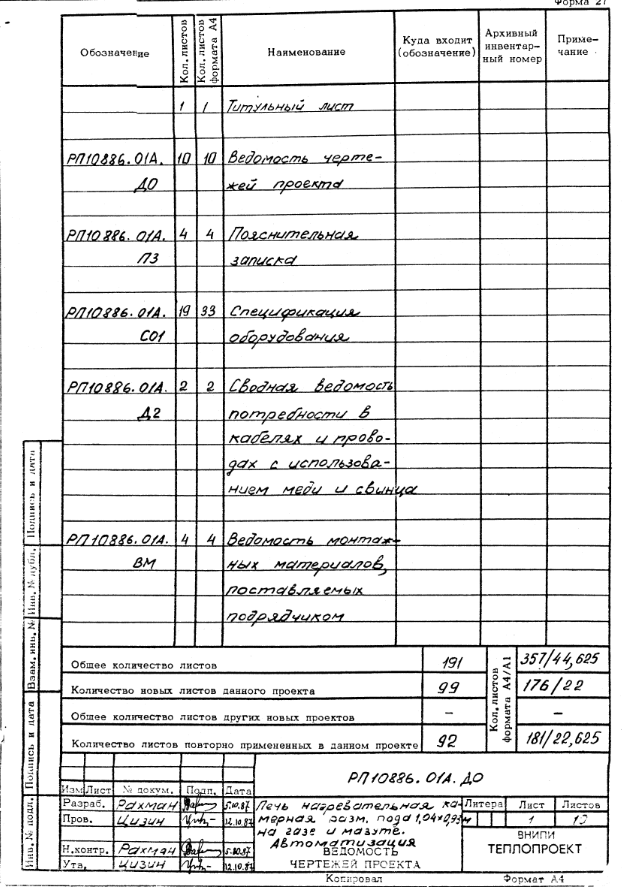 Форма 21
Обозначение Кол. листов Кол. листов формата А4 Наименование Куда входит (обозначение) Архивный инвентар-ный номер Приме-чание
1 1 Титульный лист
РП10886.01А. 10 10 Ведомость черте-
ДО жей проекта
РП10886.01А. 4 4 Пояснительная
ПЗ записка
РП10886.01А. 19 33 Спецификация
СО1 оборудования
РП10886.01А. 2 2 Сводная ведомость
Д2 потребности в
кабелях и прово-
дах с использова-
нием меди и свинца
РП10886.01А. 4 4 Ведомость монтаж-
ВМ ных материалов,
поставляемых
подрядчиком
Общее количество листов 191 Кол. листов формата А4/А1 357/44,625
Количество новых листов данного проекта 99 176/22
Общее количество листов других новых проектов – –
Количество листов повторно примененных в данном проекте 92 181/22,625
РП10886.01А.ДО
Изм Лист № докум. Подп. Дата
Разраб. Рахман 5.10.87 Печь нагревательная ка- Литера Лист Листов
Пров. Цизин 12.10.87 мерная разм. пода 1,04×0,93м 1 10
на газе и мазуте. ВНИПИ
Н.контр. Рахман 5.10.87 Автоматизация ТЕПЛОПРОЕКТ
Утв. Цизин 12.10.87 ВЕДОМОСТЬ
ЧЕРТЕЖЕЙ ПРОЕКТА
Копировал Формат А4
Инв. № подл. Подпись и дата Взам. инв. № Инв. № дубл. Подпись и дата